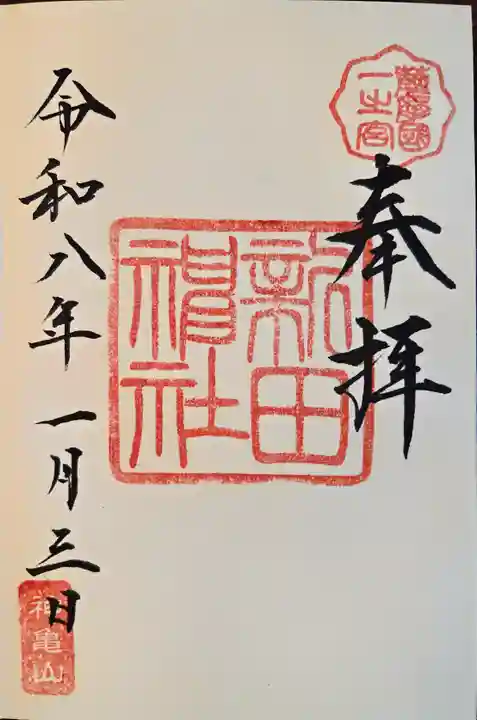 薩摩國
一之宮
奉拝
新田
神社
令和八年 一月三日
神亀山